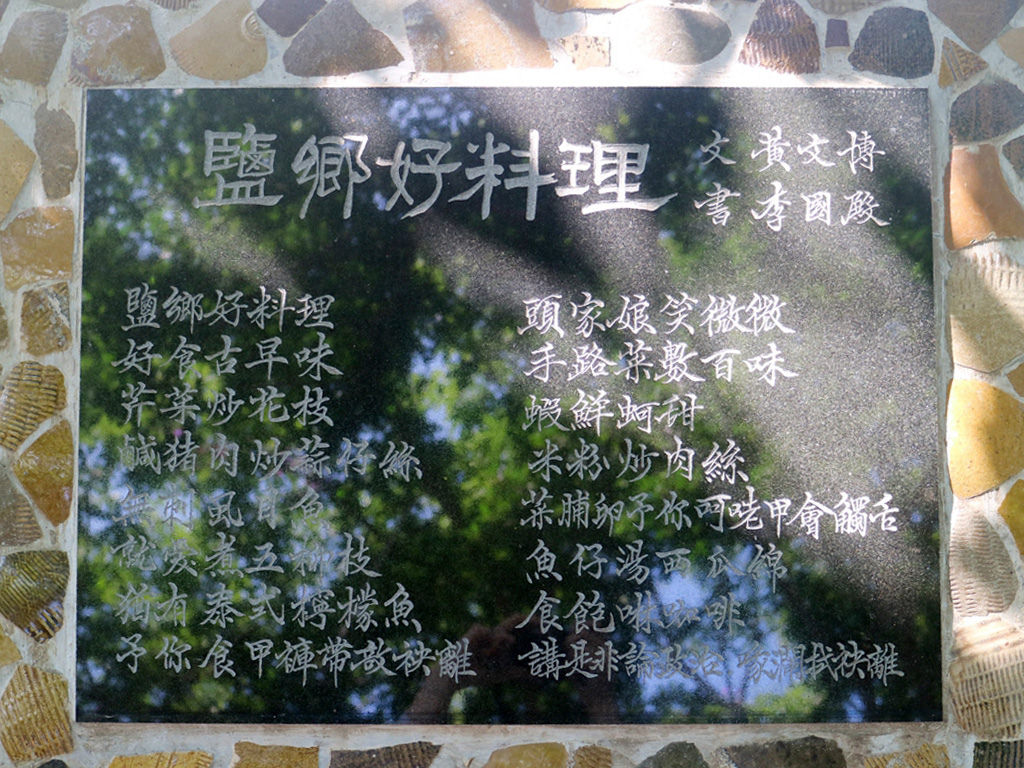 鹽鄉好料理
文 黃文博
書 李國殿
鹽鄉好料理
好食古早味
芹菜炒花枝
鹹猪肉炒蒜仔絲
無刺虱目魚
就愛煮五柳枝
猶有泰式檸檬魚
予你食甲褲帶敨袂離
頭家娘笑微微
手路菜數百味
蝦鮮蚵甜
米粉炒肉絲
菜脯卵予你呵咾甲會觸舌
魚仔湯西瓜綿
食飽啉咖啡
講是非論政治 家瀾拭袂離